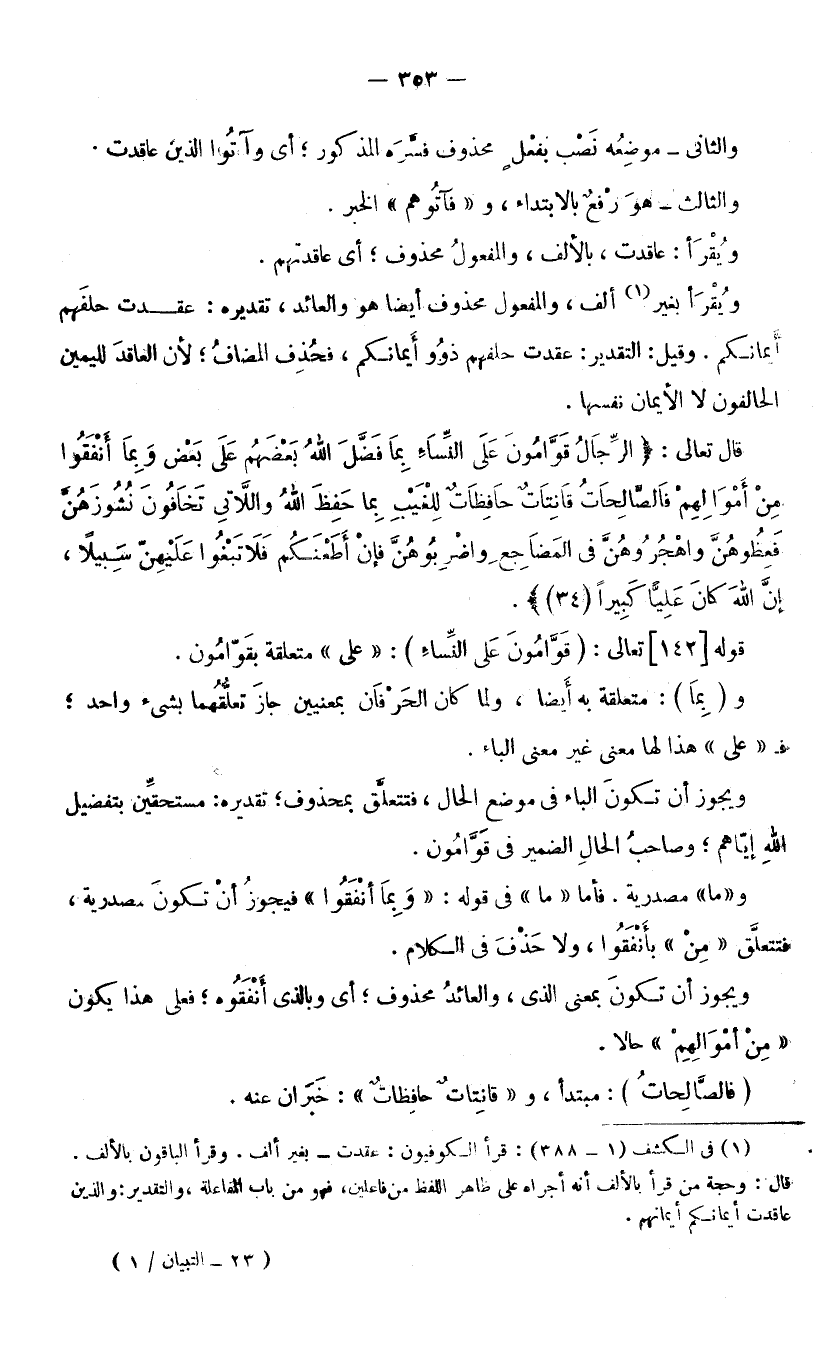 — ٣٥٣ —
والثانى ــ موضِعُه نَصْب بفعْلٍ محذوف فسَّرَه المذكور ؛ أى وآتُوا الذين عاقدت .
والثالث ــ هوَ رَفْعٌ بالابتداء ، و « فآتُوهم » الخبر .
و يُقْرَأ : عاقدت ، بالألف ، والمفعولُ محذوف ؛ أى عاقدتهم .
و يُقْرَأ بغير(١) ألف ، والمفعول محذوف أيضا هو والعائد ، تقديره : عقــدت حلفَهم
أَيمانكم . وقيل: التقدير: عقدت حلفهم ذوُو أَيمانكم ، فحُذِف المضافُ ؛ لأن العاقدَ لليمين
الحالفون لا الأيمان نفسها .
قال تعالى : ﴿ الرِّجَالُ قَوَّامُونَ عَلَى النِّسَاءِ بِمَا فَضَّلَ اللهُ بَعْضَهُمْ عَلَى بَعْضٍ وَبِمَا أَنْفَقُوا
مِنْ أَمْوَالِهِمْ فَالصَّالِحَاتُ قَانِتَاتٌ حَافِظَاتٌ لِلْغَيْبِ بِما حَفِظَ اللهُ واللَّاتِي تَخَافُونَ نُشُوزَهُنَّ
فَعِظُوهُنَّ واهْجُرُوهُنَّ فى المَضَاجِعِ واضْرِبُوهُنَّ فإنْ أَطَعْنَكُم فَلَا تَبْغُوا عَلَيْهِنّ سَبِيلًا ،
إنَّ اللهَ كَانَ عَلِيًّا كَبِيراً (٣٤) ﴾ .
قوله [١٤٢] تعالى : ( قَوَّامُونَ عَلَى النِّسَاءِ ) : « على » متعلقة بقَوّامُون .
و ( بِمَا ) : متعلقة به أَيضا ، ولما كان الحَرْفان بمعنيين جازَ تعلُّقُهما بشىء واحد ؛
فـ « على » هذا لها معنى غير معنى الباء .
ويجوز أن تكونَ الباء فى موضع الحال ، فتتعلَّق بمحذوف؛ تقديره: مستحقِّين بتفضيل
اللهِ إيّاهم ؛ وصاحبُ الحالِ الضمير فى قَوَّامُون .
و«ما» مصدرية . فأما « ما » فى قوله : « وَبِمَا أَنْفَقُوا » فيجوزُ أنْ تكونَ مصدرية ،
فتتعلَّق « مِنْ » بأَنْفَقُوا ، ولا حَذْفَ فى الكلام .
ويجوز أن تكونَ بمعنى الذى ، والعائدُ محذوف ؛ أى وبالذى أَنْفَقُوه ؛ فعلى هذا يكون
« مِنْ أَمْوَالِهِمْ » حالا .
( فالصَّالِحاتُ ) : مبتدأ ، و « قانِتاتٌ حافِظاتٌ » : خَبَرَان عنه .
(١) فى الكشف (١ ــ ٣٨٨) : قرأ الكوفيون : عقدت ــ بغير ألف . وقرأ الباقون بالألف .
قال : وحجة من قرأ بالألف أنه أجراه على ظاهر اللفظ من فاعلين، فهو من باب المفاعلة ، والتقدير: والذين
عاقدت أيمانكم أيمانهم .
( ٢٣ ــ التبيان / ١ )